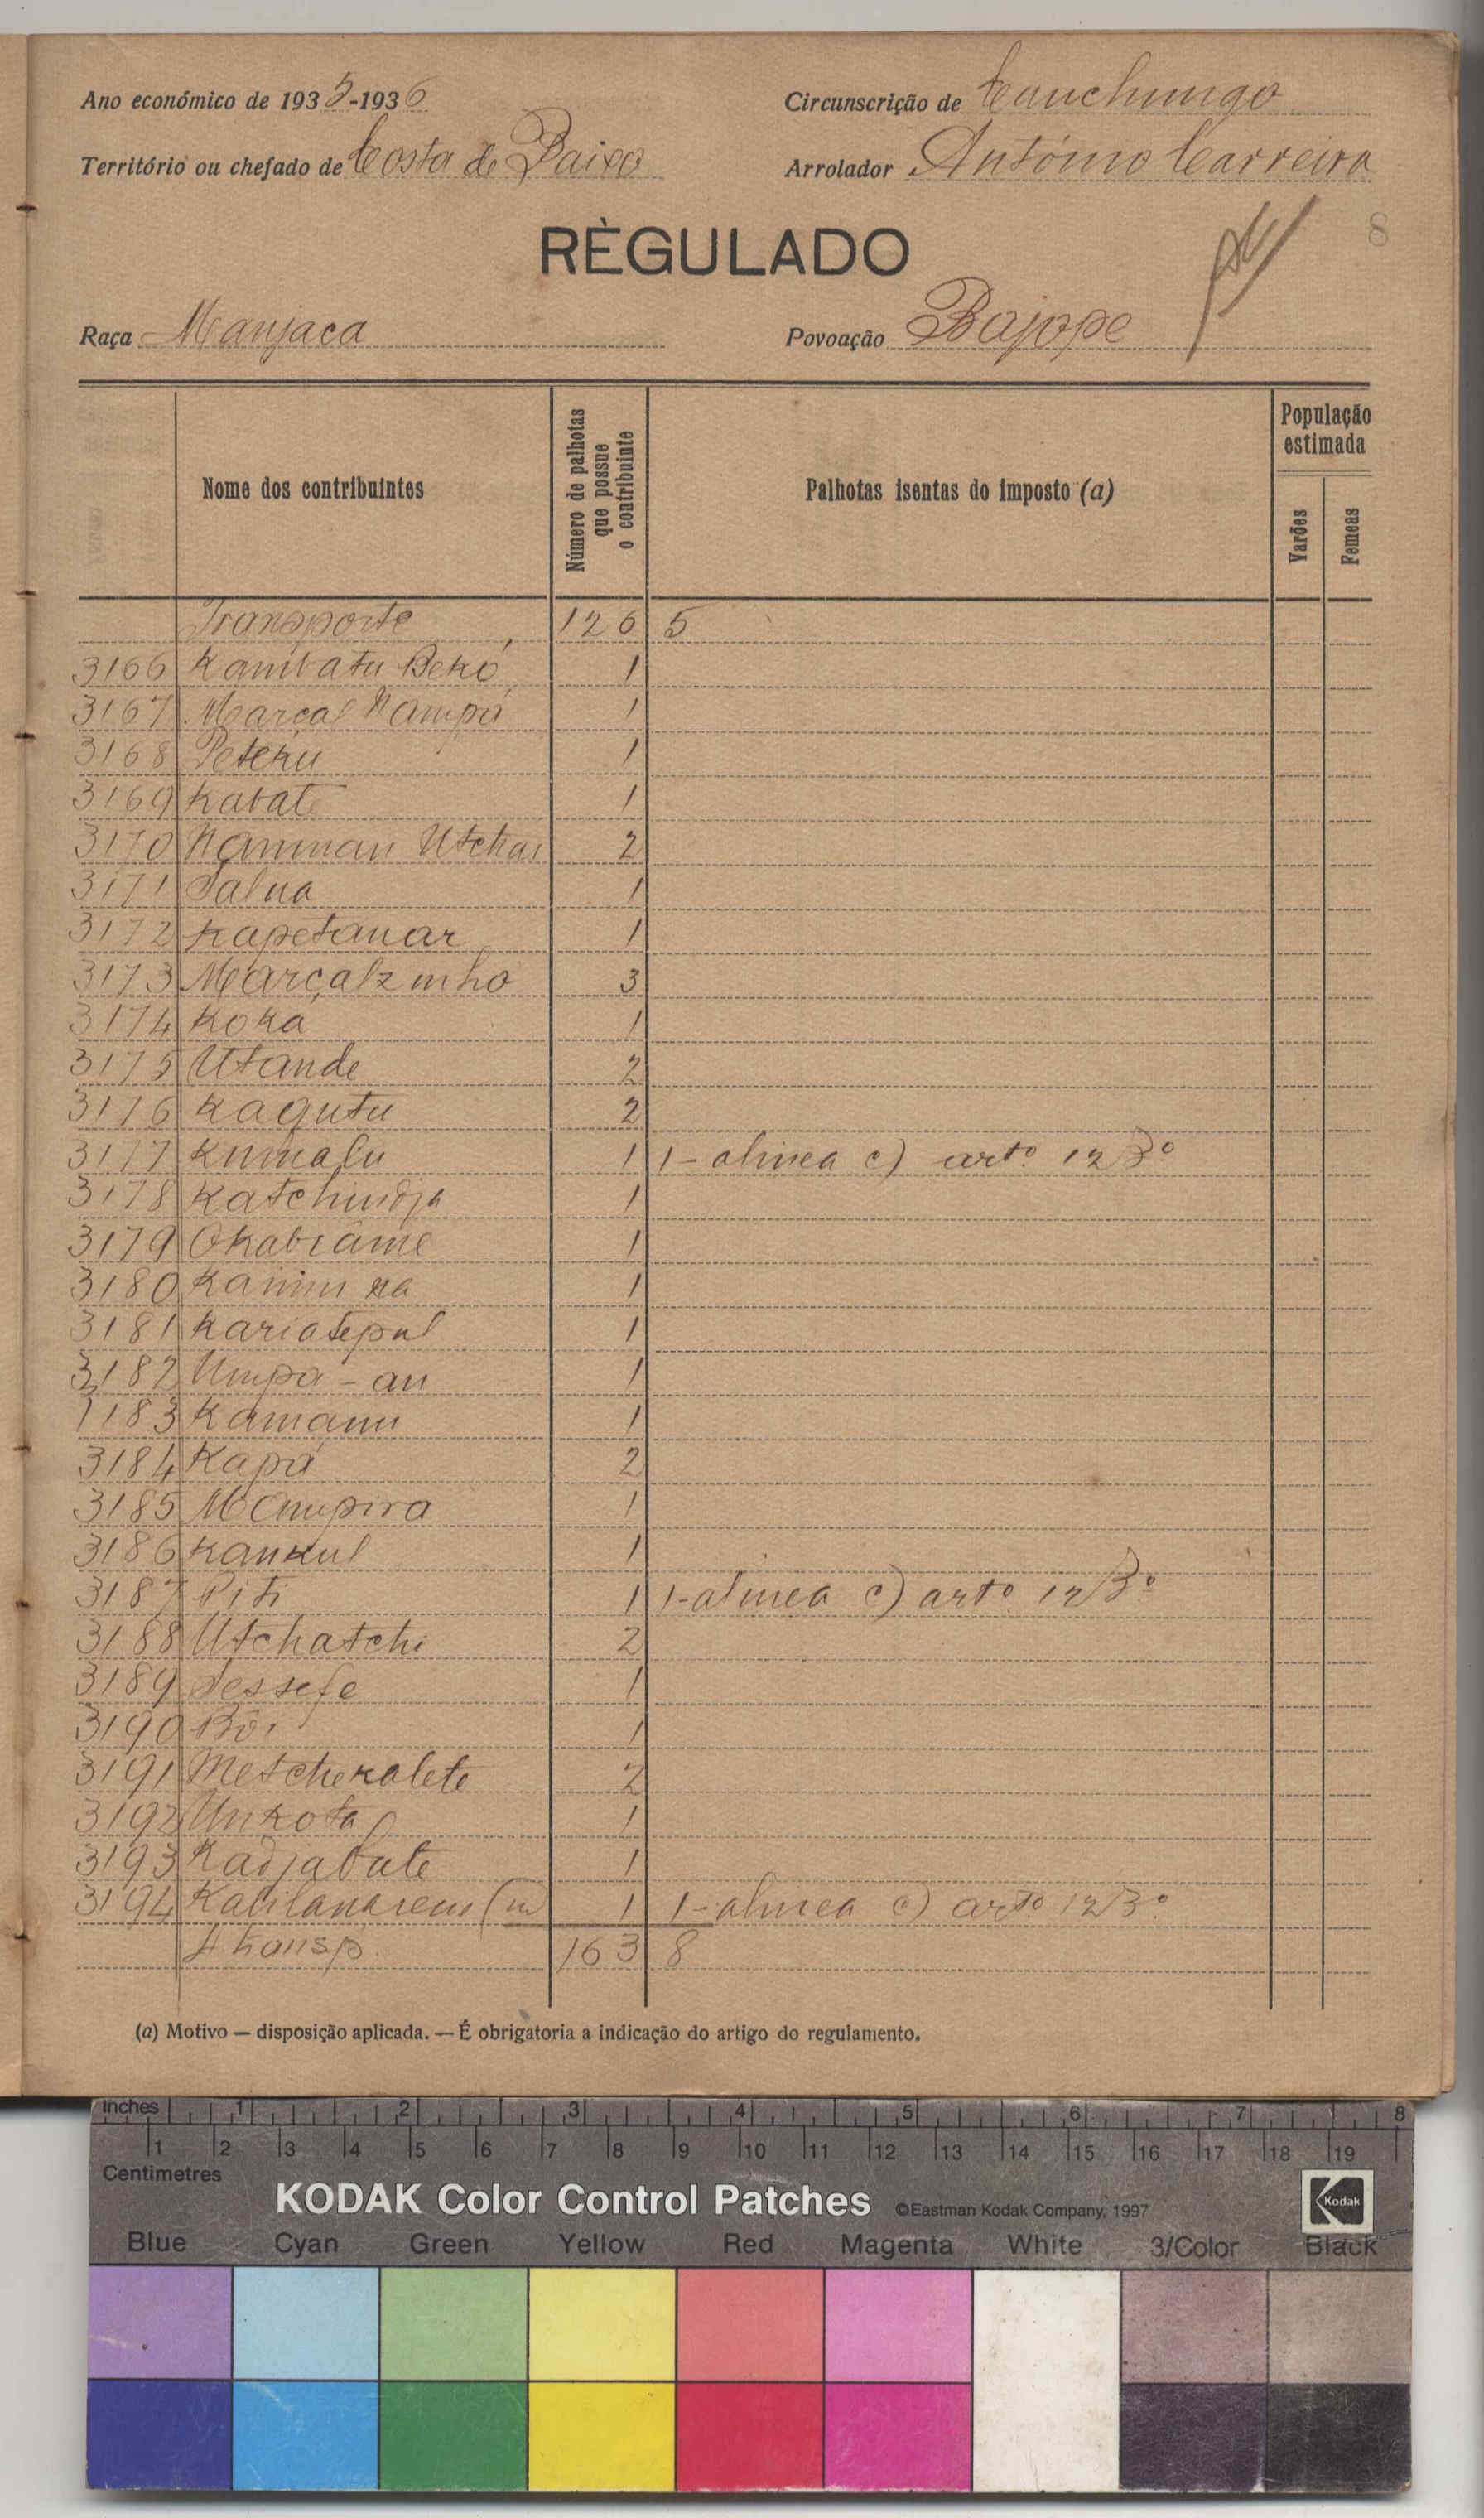 Ano económico de 1935-1936
Circunscrição de Canchungo
Território ou chefado de Costa de Baixo
Arrolador António Carreira
8
RÈGULADO
Raça Manjaca
Povoação Bajope
Nome dos contribuintes
Número de palhotas que possue o contribuinte
Palhotas isentas do imposto (a)
População estimada
Varões
Femeas
Transporte 126 5
3166 Kambatu Bekó 1
3167 Marçal Nampá 1
3168 Petchu 1
3169 Kabate 1
3170 Namman Utchai 2
3171 Salna 1
3172 Kapetanar 1
3173 Marçalzinho 3
3174 Koka 1
3175 Utande 2
3176 Kagutu 2
3177 Kumalu 1 1-alinea c) artº 123º
3178 Katchindja 1
3179 Okabiame 1
3180 1
3181 Kariatepul 1
3182 Umpa-an 1
1183 Kamanu 1
3184 Kapá 2
3185 Mampira 1
3186 Kankul 1
3187 Piti 1 1-alinea c) artº 123º
3188 Utchatchi 2
3189 Sessefe 1
3190 Bôi 1
3191 Metchekalete 2
3192 Unkota 1
3193 Kadjabate 1
3194 1 1-alinea c) artº 123º
A transp. 163 8
(a) Motivo — disposição aplicada. — É obrigatoria a indicação do artigo do regulamento.
Inches 1 2 3 4 5 6 7 8
1 2 3 4 5 6 7 8 9 10 11 12 13 14 15 16 17 18 19
Centimetres
KODAK Color Control Patches ©Eastman Kodak Company, 1997 Kodak
Blue Cyan Green Yellow Red Magenta White 3/Color Black